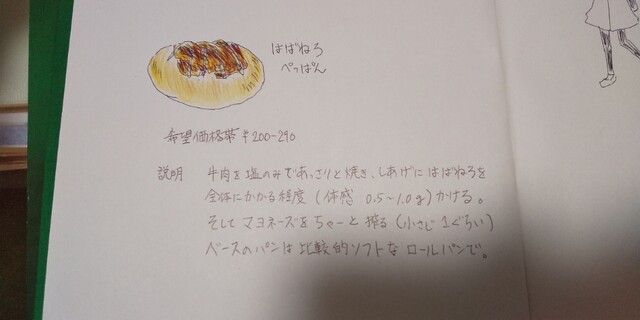 はばねろ
ぺっぱん
希望価格帯 ¥200-290
説明 牛肉を塩のみであっさりと焼き、しあげにはばねろを
全体にかかる程度(体感 0.5~1.0g)かける。
そしてマヨネーズをちゃーと搾る(小さじ1ぐらい)
ベースのパンは比較的ソフトなロールパンで。